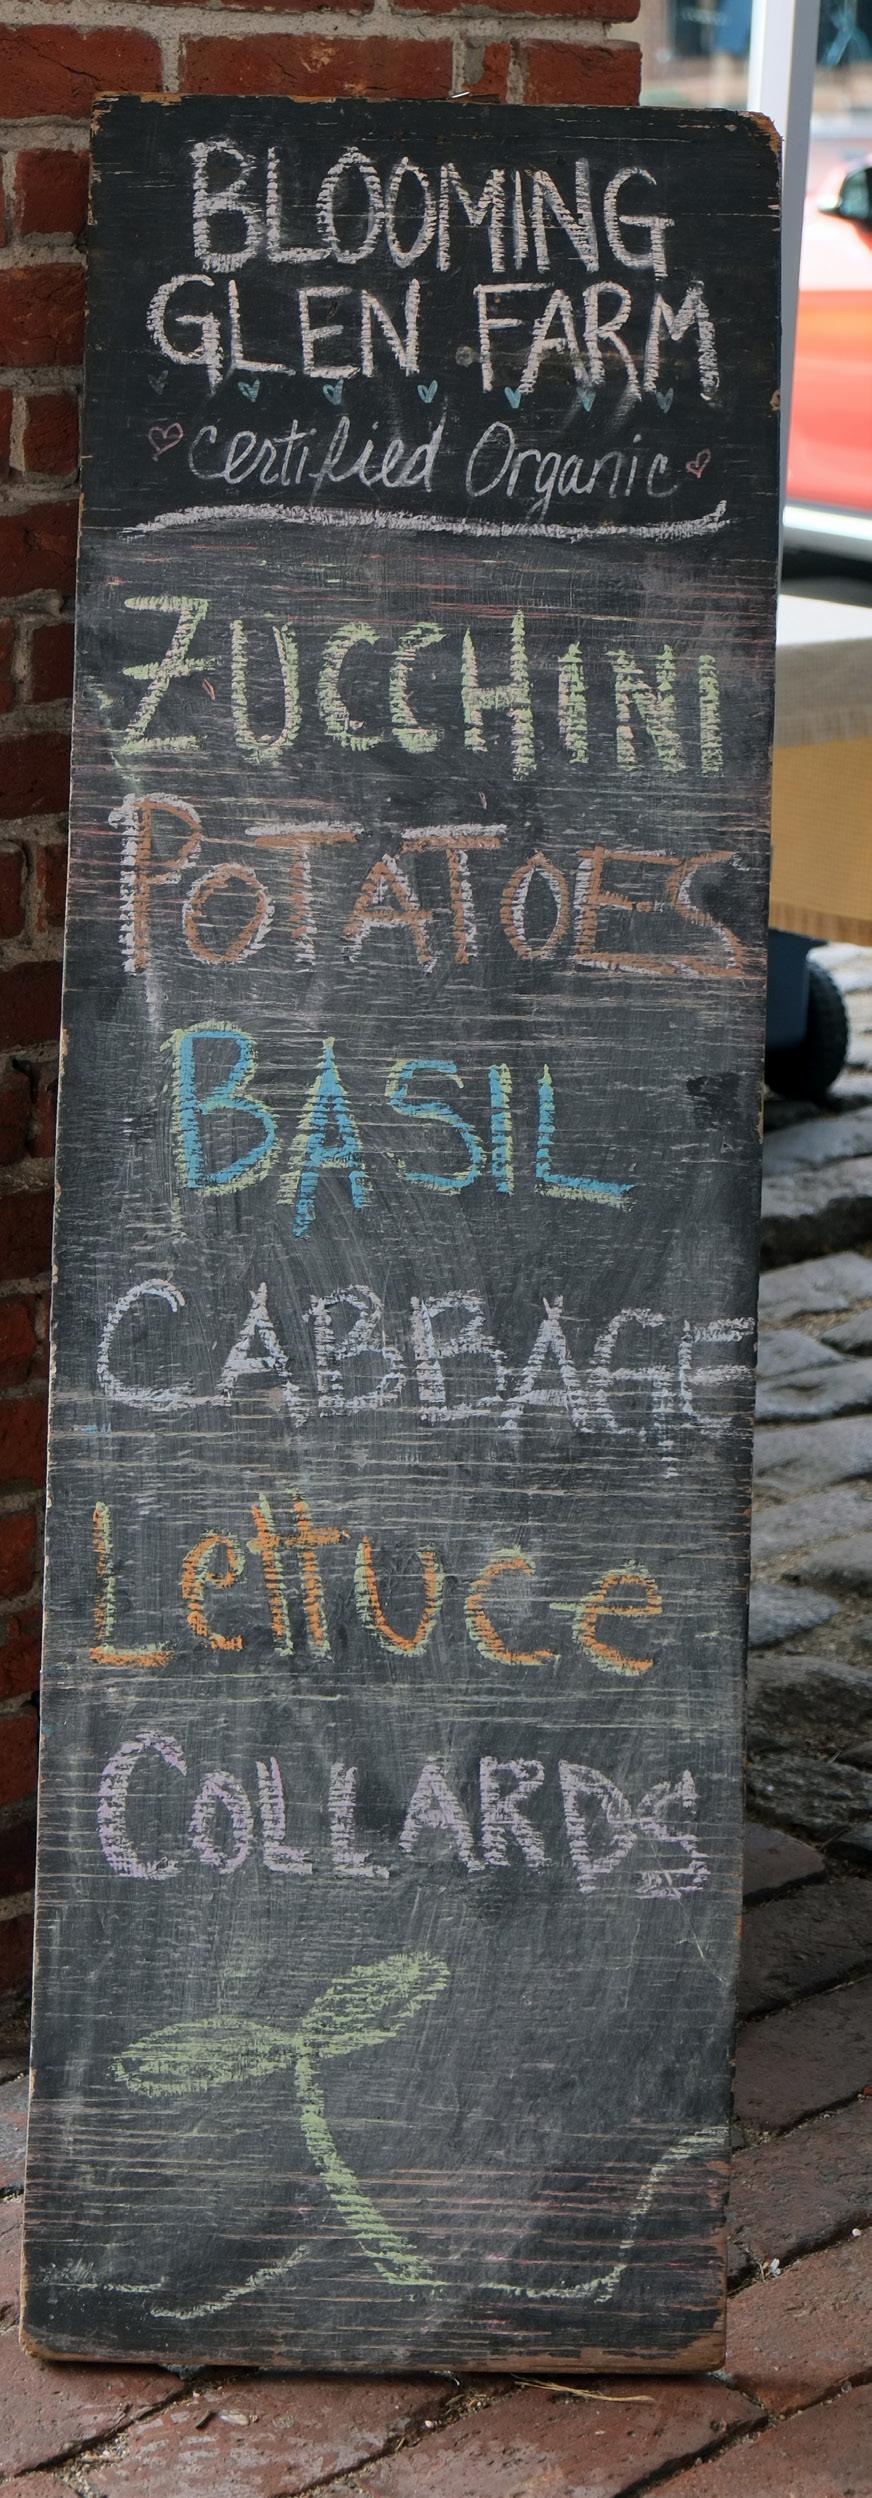 BLOOMING
GLEN FARM
Certified Organic
ZUCCHINI
POTATOES
BASIL
CABBAGE
Lettuce
COLLARDS